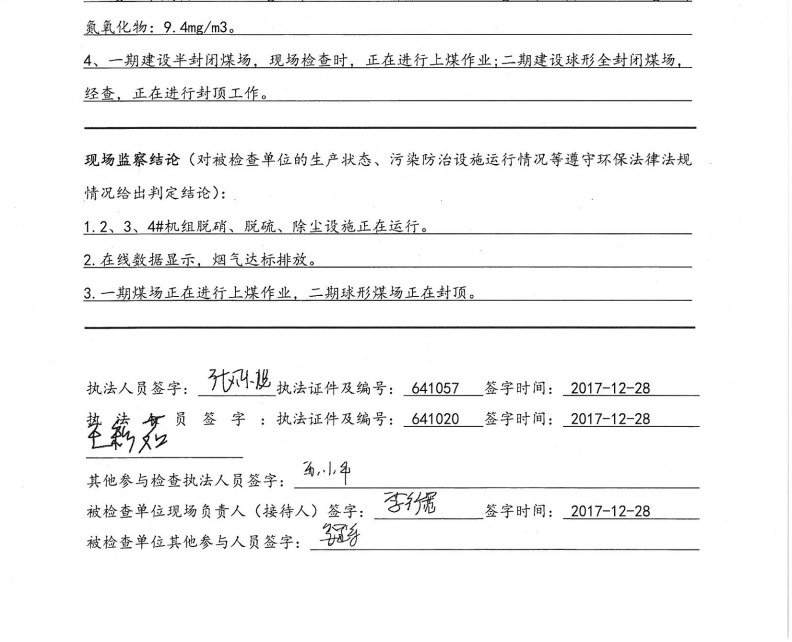 氮氧化物：9.4mg/m3。
4、一期建设半封闭煤场，现场检查时，正在进行上煤作业;二期建设球形全封闭煤场，
经查，正在进行封顶工作。
现场监察结论（对被检查单位的生产状态、污染防治设施运行情况等遵守环保法律法规
情况给出判定结论）：
1.2、3、4#机组脱硝、脱硫、除尘设施正在运行。
2.在线数据显示，烟气达标排放。
3.一期煤场正在进行上煤作业，二期球形煤场正在封顶。
执法人员签字： 执法证件及编号： 641057 签字时间： 2017-12-28
执法人员签字：执法证件及编号： 641020 签字时间： 2017-12-28
其他参与检查执法人员签字：
被检查单位现场负责人（接待人）签字： 签字时间： 2017-12-28
被检查单位其他参与人员签字：